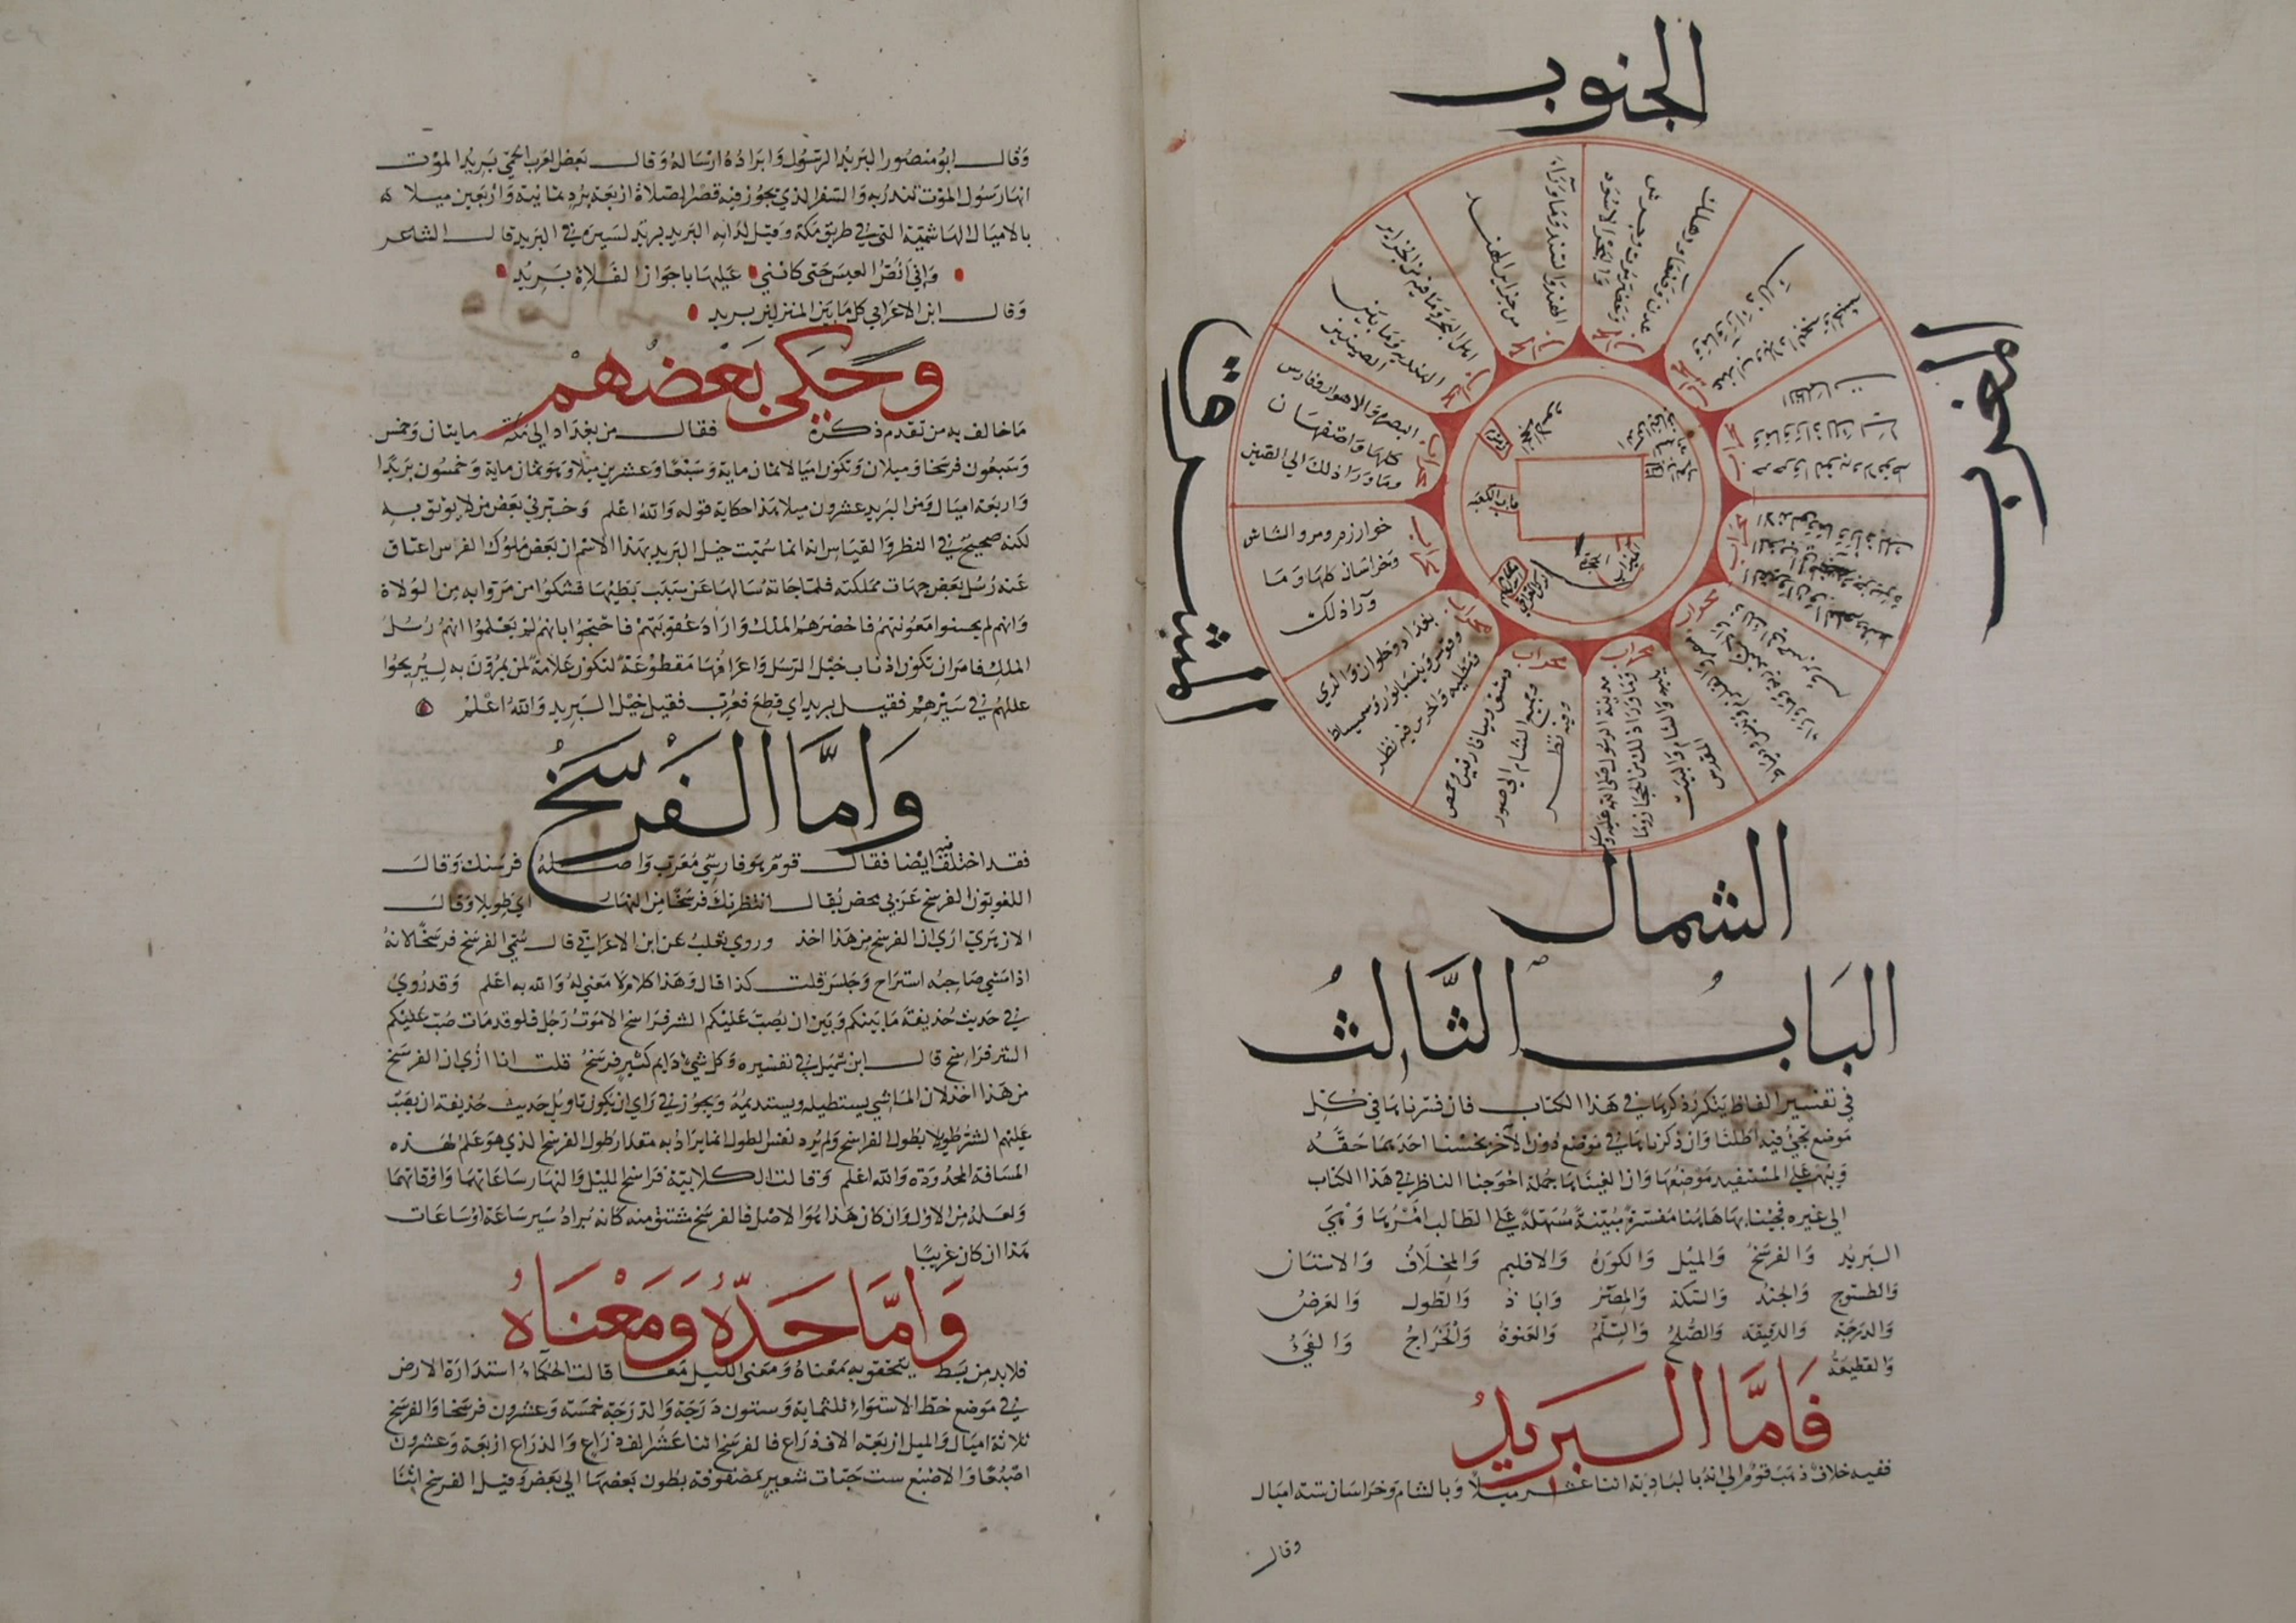 الجنوب
المغرب
المشرق
الشمال
محراب
خوارزم ومرو والشاش
وخراسان كلها وما
وراذلك
البصره والاهواز وفارس
كلها واصفهان
وماوراذلك الي الصين
من جزاير الهند
الهند والسند وما وراء
بغداد وحلوان والدي
باب الكعبه
الباب الثالث
في تفسير الفاظ يتكرر ذكرها في هذا الكتاب فان فسرناها في كل
موضع تجئ فيه اطلنا وان ذكرناها في موضع دون الآخر بخسنا احدهما حقه
ويبهم علي المستفيد موضعها وان الغيناها جملة احوجنا الناظر في هذا الكتاب
الى غيره فجئنا بها هاهنا مفسرة مبينة مسهلة علي الطالب امرها وهي
البريد والفرسخ والميل والكورة والاقليم والمخلاف والاستان
والطسوج والجند والسكة والمصر واباذ والطول والعرض
والدرجة والدقيقة والصلح والسلم والعنوة والخراج والفيء
والقطيعة
فاما البريد
ففيه خلاف ذهب قوم الي انه بالبادية اثنا عشر ميلا وبالشام وخراسان ستة اميال
وقال
وقال ابو منصور البريد الرسول وابراده ارساله وقال بعض العرب الحمي بريد الموت
انها رسول الموت تنذر به والسفر الذي يجوز فيه قصر الصلاة اربعة برد ثمانية واربعين ميلا
بالاميال الهاشمية التي في طريق مكة وقيل لدابه البريد بريد لسيره في البريد قال الشاعر
واني انص العيس حتى كانني عليها باجواز الفلاة بريد
وقال ابن الاعرابي كل ما بين المنزلين بريد
وحكى بعضهم
ما خالف به من تقدم ذكره فقال من بغداد الي مكة مايتان وخمس
وسبعون فرسخا وميلان وتكون اميالا ثمان ماية وسبعا وعشرين ميلا وهو ثمان ماية وخمسون بريدا
واربعة اميال ومن البريد عشرون ميلا هذا حكاية قوله والله اعلم وخبرني بعض من لا يوثق به
لكنه صحيح في النظر والقياس انه انما سميت خيل البريد بهذا الاسم ان بعض ملوك الفرس اعتاق
عنه رسل بعض جهات مملكته فلما جاته سالها عن سبب بطيها فشكوا من مروا به من الولاة
وانهم لم يحسنوا معونتهم فاحضرهم الملك واراد عقوبتهم فاحتجوا بانهم لم يعلموا انهم رسل
الملك فامر ان تكون اذناب خيل الرسل واعرافها مقطوعة لتكون علامة لمن يمرون به ليزيحوا
عللهم في سيرهم فقيل بريد اي قطع فعرب فقيل خيل البريد والله اعلم
واما الفرسخ
فقد اختلف فيه ايضا فقال قوم هو فارسي معرب واصله فرسنك وقال
اللغويون الفرسخ عربي محض يقال انتظرتك فرسخا من النهار اي طويلا وقال
الازهري ارى ان الفرسخ من هذا اخذ وروي ثعلب عن ابن الاعرابي قال سمي الفرسخ فرسخا لانه
اذا مشي صاحبه استراح وجلس قلت كذا قال وهذا كلام لا معني له والله به اعلم وقد روي
في حديث حذيفة ما بينكم وبين ان يصب عليكم الشر فراسخ الا موت رجل فلو قد مات صب عليكم
الشر فراسخ قال ابن شميل في تفسيره وكل شئ دايم كثير فرسخ قلت انا اري ان الفرسخ
من هذا اخذ لان الماشي يستطيله ويستديمه ويجوز في راي ان يكون تاويل حديث حذيفة ان يصب
عليهم الشر طويلا بطول الفراسخ ولم يرد نفس الطول انما يراد به مقدار طول الفرسخ الذي هو علم لهذه
المسافة المحدودة والله اعلم وقالت الكلابية فراسخ الليل والنهار ساعاتهما واوقاتهما
ولعله من الاول وان كان هذا هو الاصل فالفرسخ مشتق منه كانه يراد سير ساعة او ساعات
هذا ان كان عربيا
واما حده ومعناه
فلا بد من بسط يتحقق به معناه ومعنى الميل معا قالت الحكماء استدارة الارض
في موضع خط الاستواء ثلثماية وستون درجة والدرجة خمسة وعشرون فرسخا والفرسخ
ثلاثة اميال والميل اربعة الاف ذراع فالفرسخ اثنا عشر الف ذراع والذراع اربعة وعشرون
اصبعا والاصبع ست حبات شعير مصفوفة بطون بعضها الي بعض وقيل الفرسخ اثنا